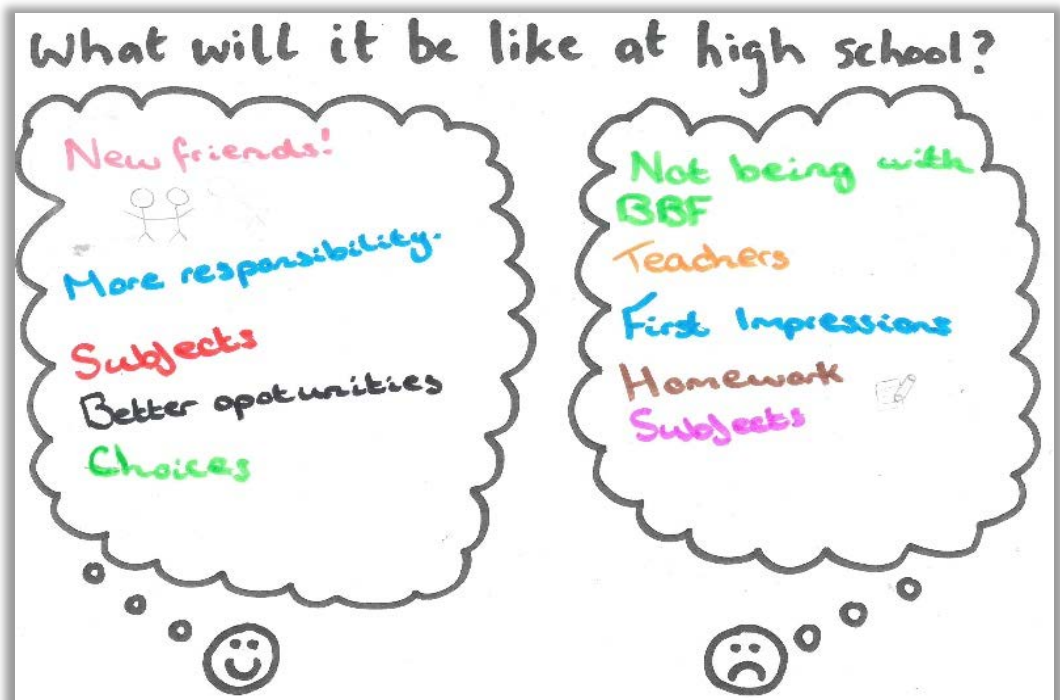 What will it be like at high school?
New friends!
More responsibility.
Subjects
Better opotunities
Choices
Not being with
BBF
Teachers
First Impressions
Homework
Subjects